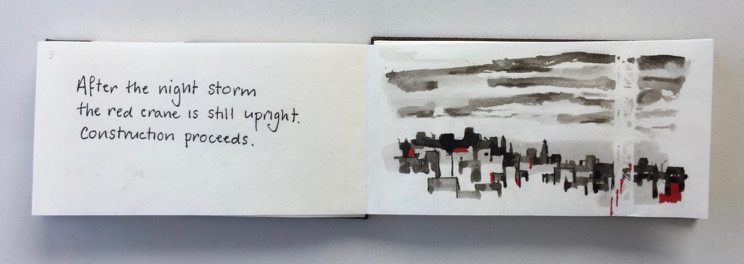 After the night storm
the red crane is still upright.
Construction proceeds.